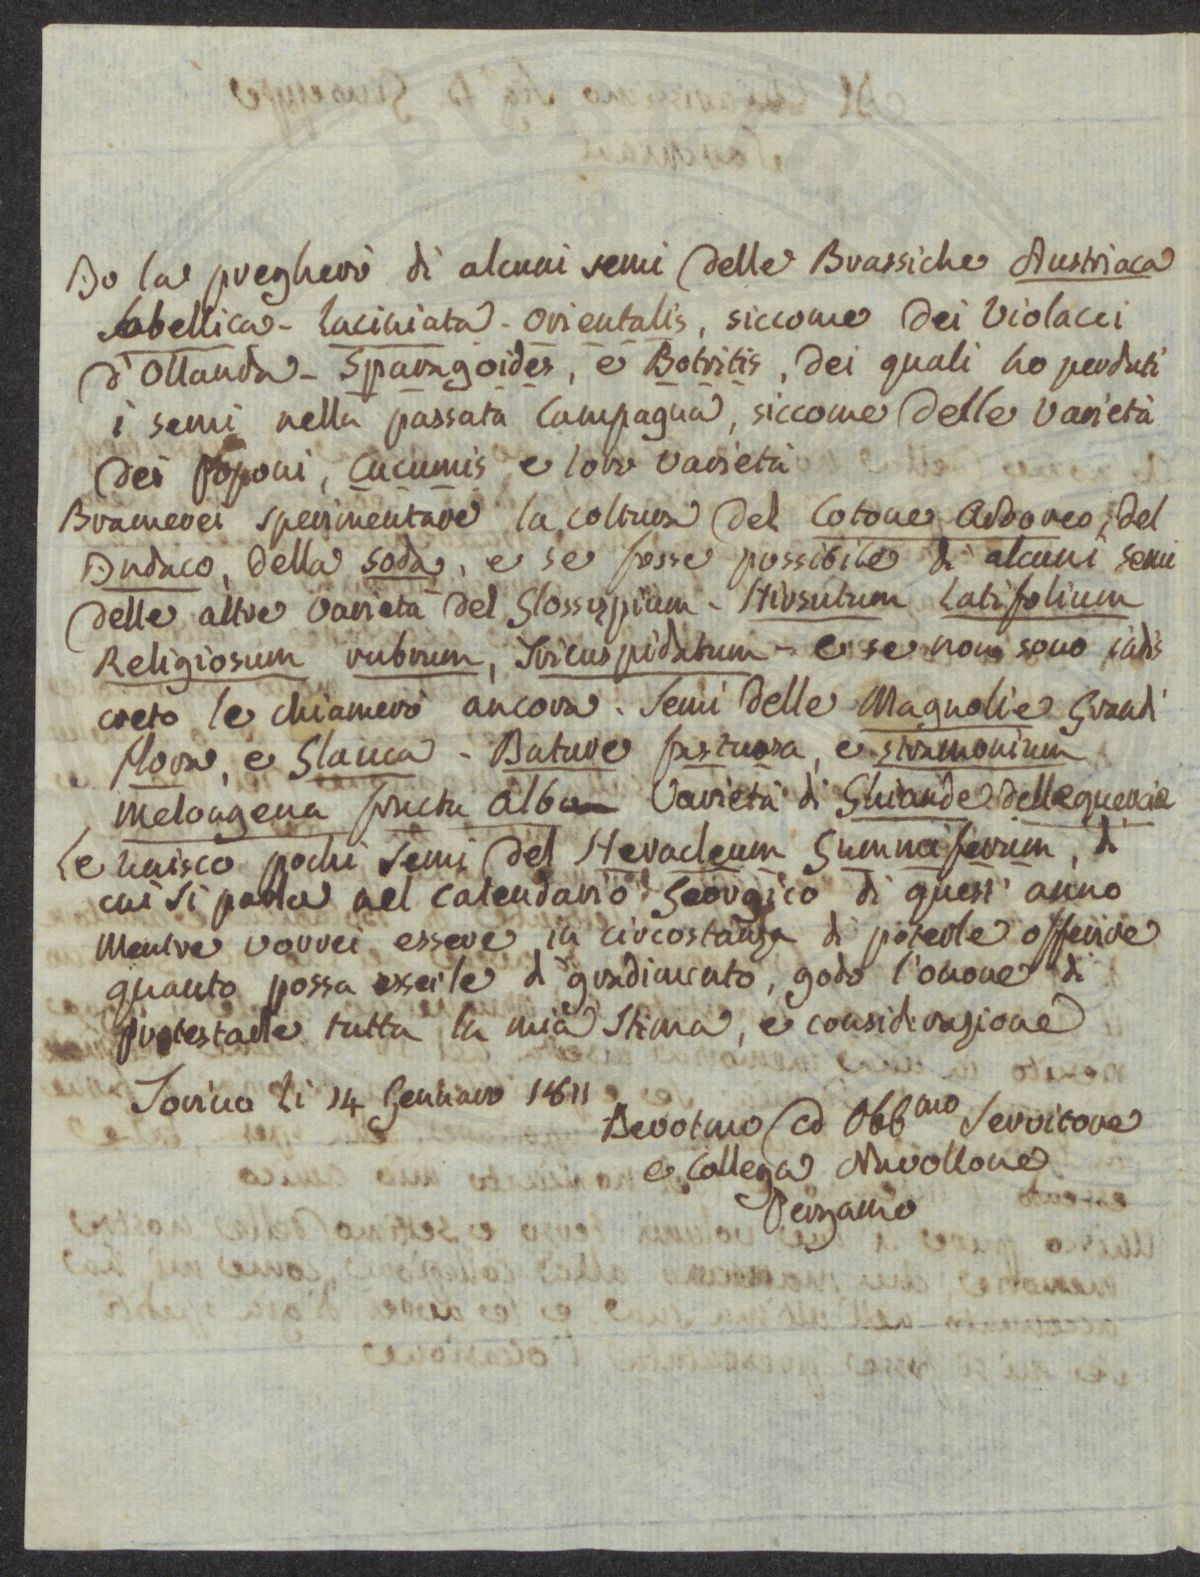 Io la pregherò di alcuni semi delle Brassiche Austriaca
Sabellica - laciniata - orientalis, siccome dei Violacci
d'Ollanda - Sparagoides, e Botritis, dei quali ho perduti
i semi nella passata Campagna, siccome delle varietà
dei poponi, Cucumis e loro varietà
Bramerei sperimentare la coltura del Cotone Arboreo, del
Indaco, della soda, e se fosse possibile di alcuni semi
delle altre varietà del Glossypium - Hirsutum latifolium
Religiosum rubrum, Tricuspidatum - e se non sono indis
creto le chiamerò ancora. Semi delle Magnolie Grandi
flora, e Glauca - Dature fastuosa, e stramonium
Melongena fructu albo Varietà di Ghiande delle quercie
Le unisco pochi semi del Heracleum Gummiferum, di
cui si parla nel Calendario Georgico di quest' anno
Mentre vorrei essere in circostanza di poterle offerire
quanto possa esserle di gradimento, godo l'onore di
protestarle tutta la mia Stima, e considerazione
Torino li 14 Gennaro 1811
Devotmo ed Obbmo Servitore
e Collega Nuvollone
Pergamo